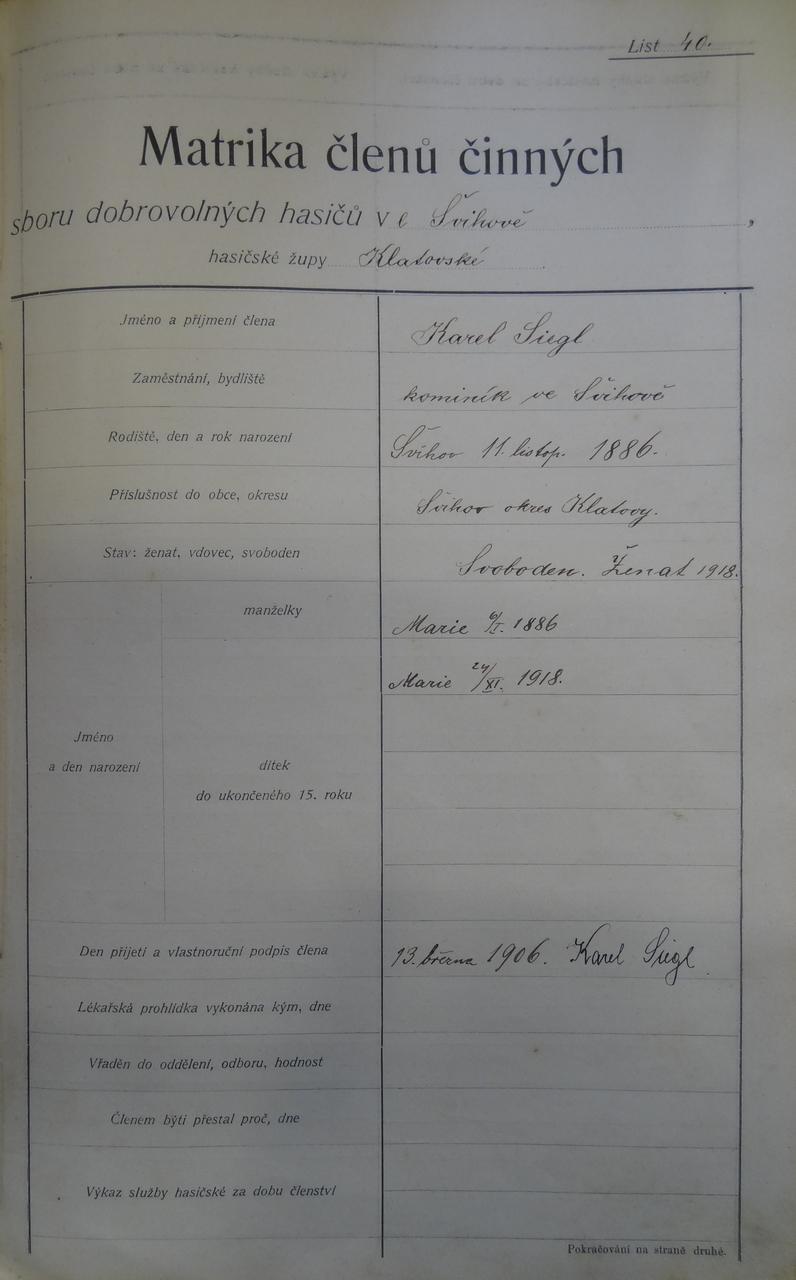 List 40.
Matrika členů činných
sboru dobrovolných hasičů ve Švihově,
hasičské župy Klatovské
Jméno a příjmení člena Karel Siegl
Zaměstnání, bydliště kominík ve Švihově
Rodiště, den a rok narození Švihov 11. listop. 1886.
Příslušnost do obce, okresu Švihov okres Klatovy.
Stav: ženat, vdovec, svoboden Svoboden. Ženat 1918.
manželky Marie 6/I. 1886
Marie 24/XI. 1918.
Jméno
a den narození dítek
do ukončeného 15. roku
Den přijetí a vlastnoruční podpis člena 13. března 1906. Karel Siegl
Lékařská prohlídka vykonána kým, dne
Vřaděn do oddělení, odboru, hodnost
Členem býti přestal proč, dne
Výkaz služby hasičské za dobu členství
Pokračování na straně druhé.